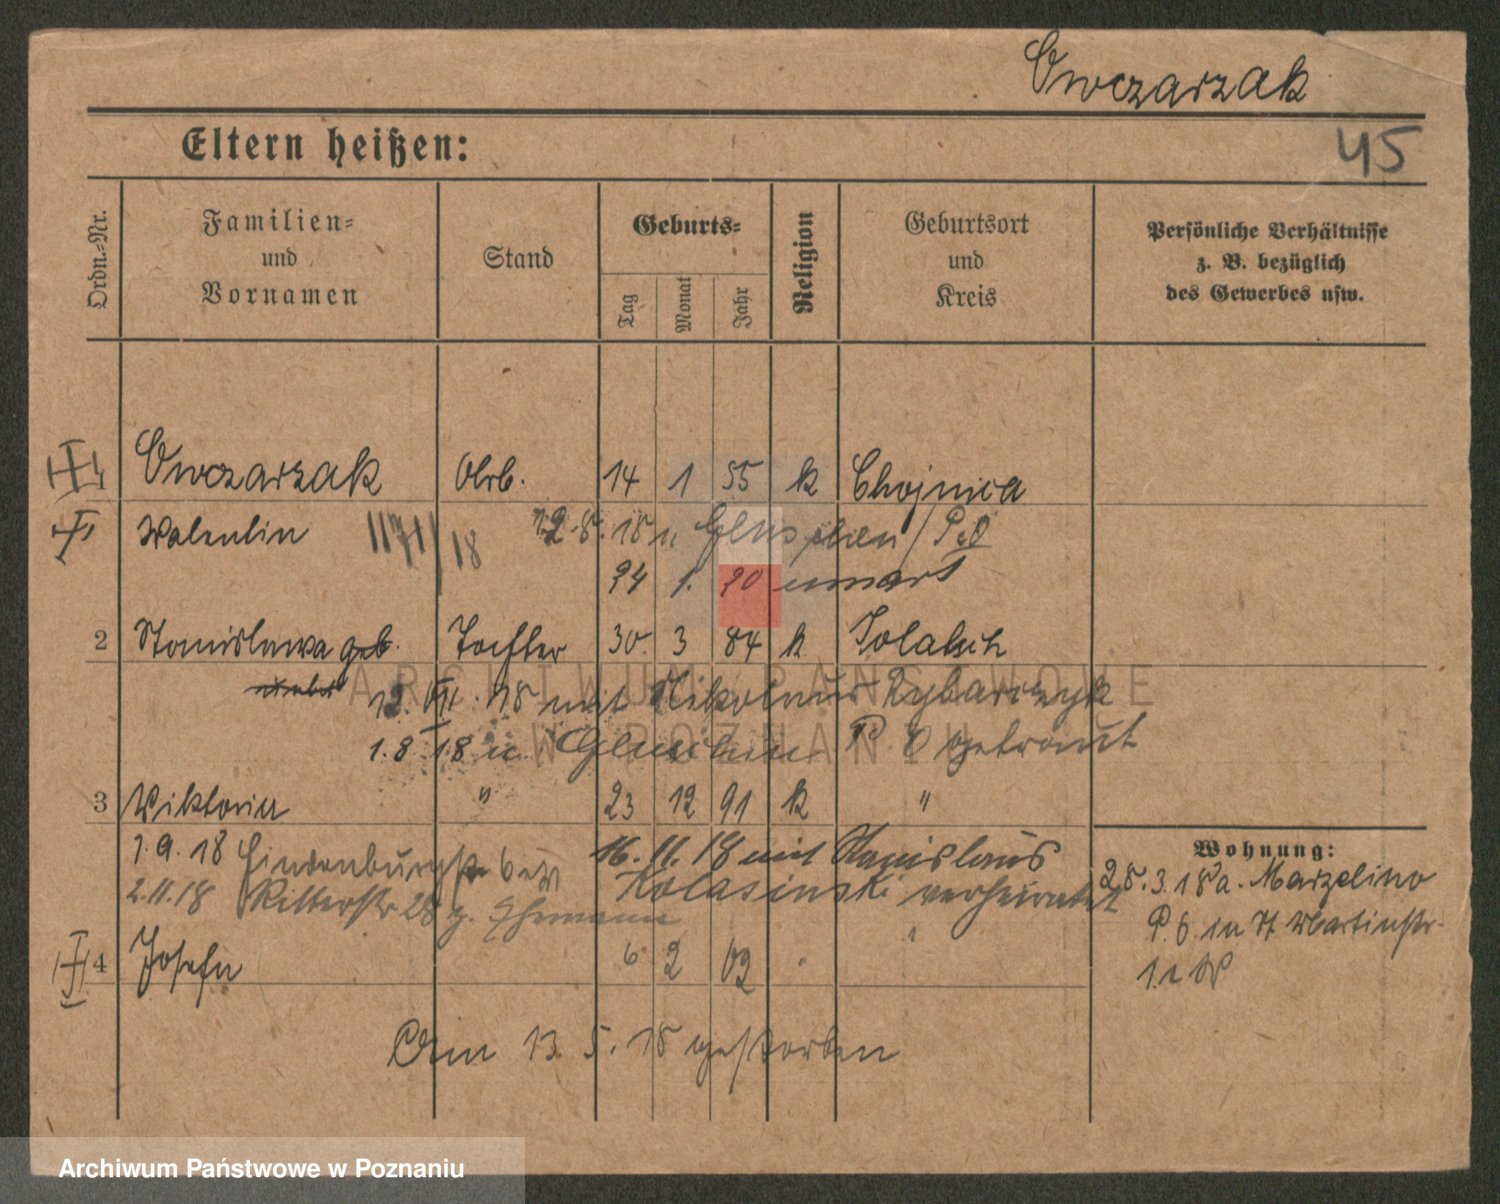 Owczarzak
45
Eltern heißen:
Ordn.-Nr.
Familien-
und
Vornamen
Stand
Geburts-
Tag
Monat
Jahr
Religion
Geburtsort
und
Kreis
Persönliche Verhältnisse
z. B. bezüglich
des Gewerbes usw.
1 Owczarzak Arb. 14 1 55 k Chojnica
Walentin 18 18 u. Gluschin / P.O
24 1. 20
2 Stanislawa geb. Tochter 30. 3 84 k Solatsch
12. VII. 18 mit Nikolaus Rybarczyk
1.8.18 in Gluschin P. O getraut
3 Viktoria " 23 12 91 k "
1.9.18 Hindenburgstr
16.11.18 mit Stanislaus
2.11.18 Ritterstr 28
Kolasinski verheiratet
4 Josefa 6 2 02
Am 13. 5. 18 gestorben
Wohnung:
28.3.18 a. Marzelino
P. O. in St Martinstr.
ARCHIWUM PAŃSTWOWE
W POZNANIU
Archiwum Państwowe w Poznaniu